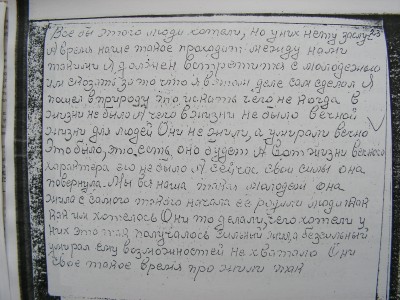 Все бы этого люди хотели, но у них нету заслуг
А время наше такое проходит между нами
такими Я должен встретится с молодежью
им сказать за то что я в этом деле сам сделал Я
пошел в природу это искать чего не когда в
жизни не было А чего в жизни не было вечной
жизни для людей Они не жили, а умирали вечно
Это было, это есть, оно будет А вот жизни вечного
характера его не было А сейчас свои силы она
повернула. Мы вся наша такая молодежь она
жила с самого такого начала ее родили люди так
как им хотелось Они то делали, чего хотели у
них это так получалось сильный жил, а безсильный
умирал ему возможностей не хватало Они
свое такое время про жили так